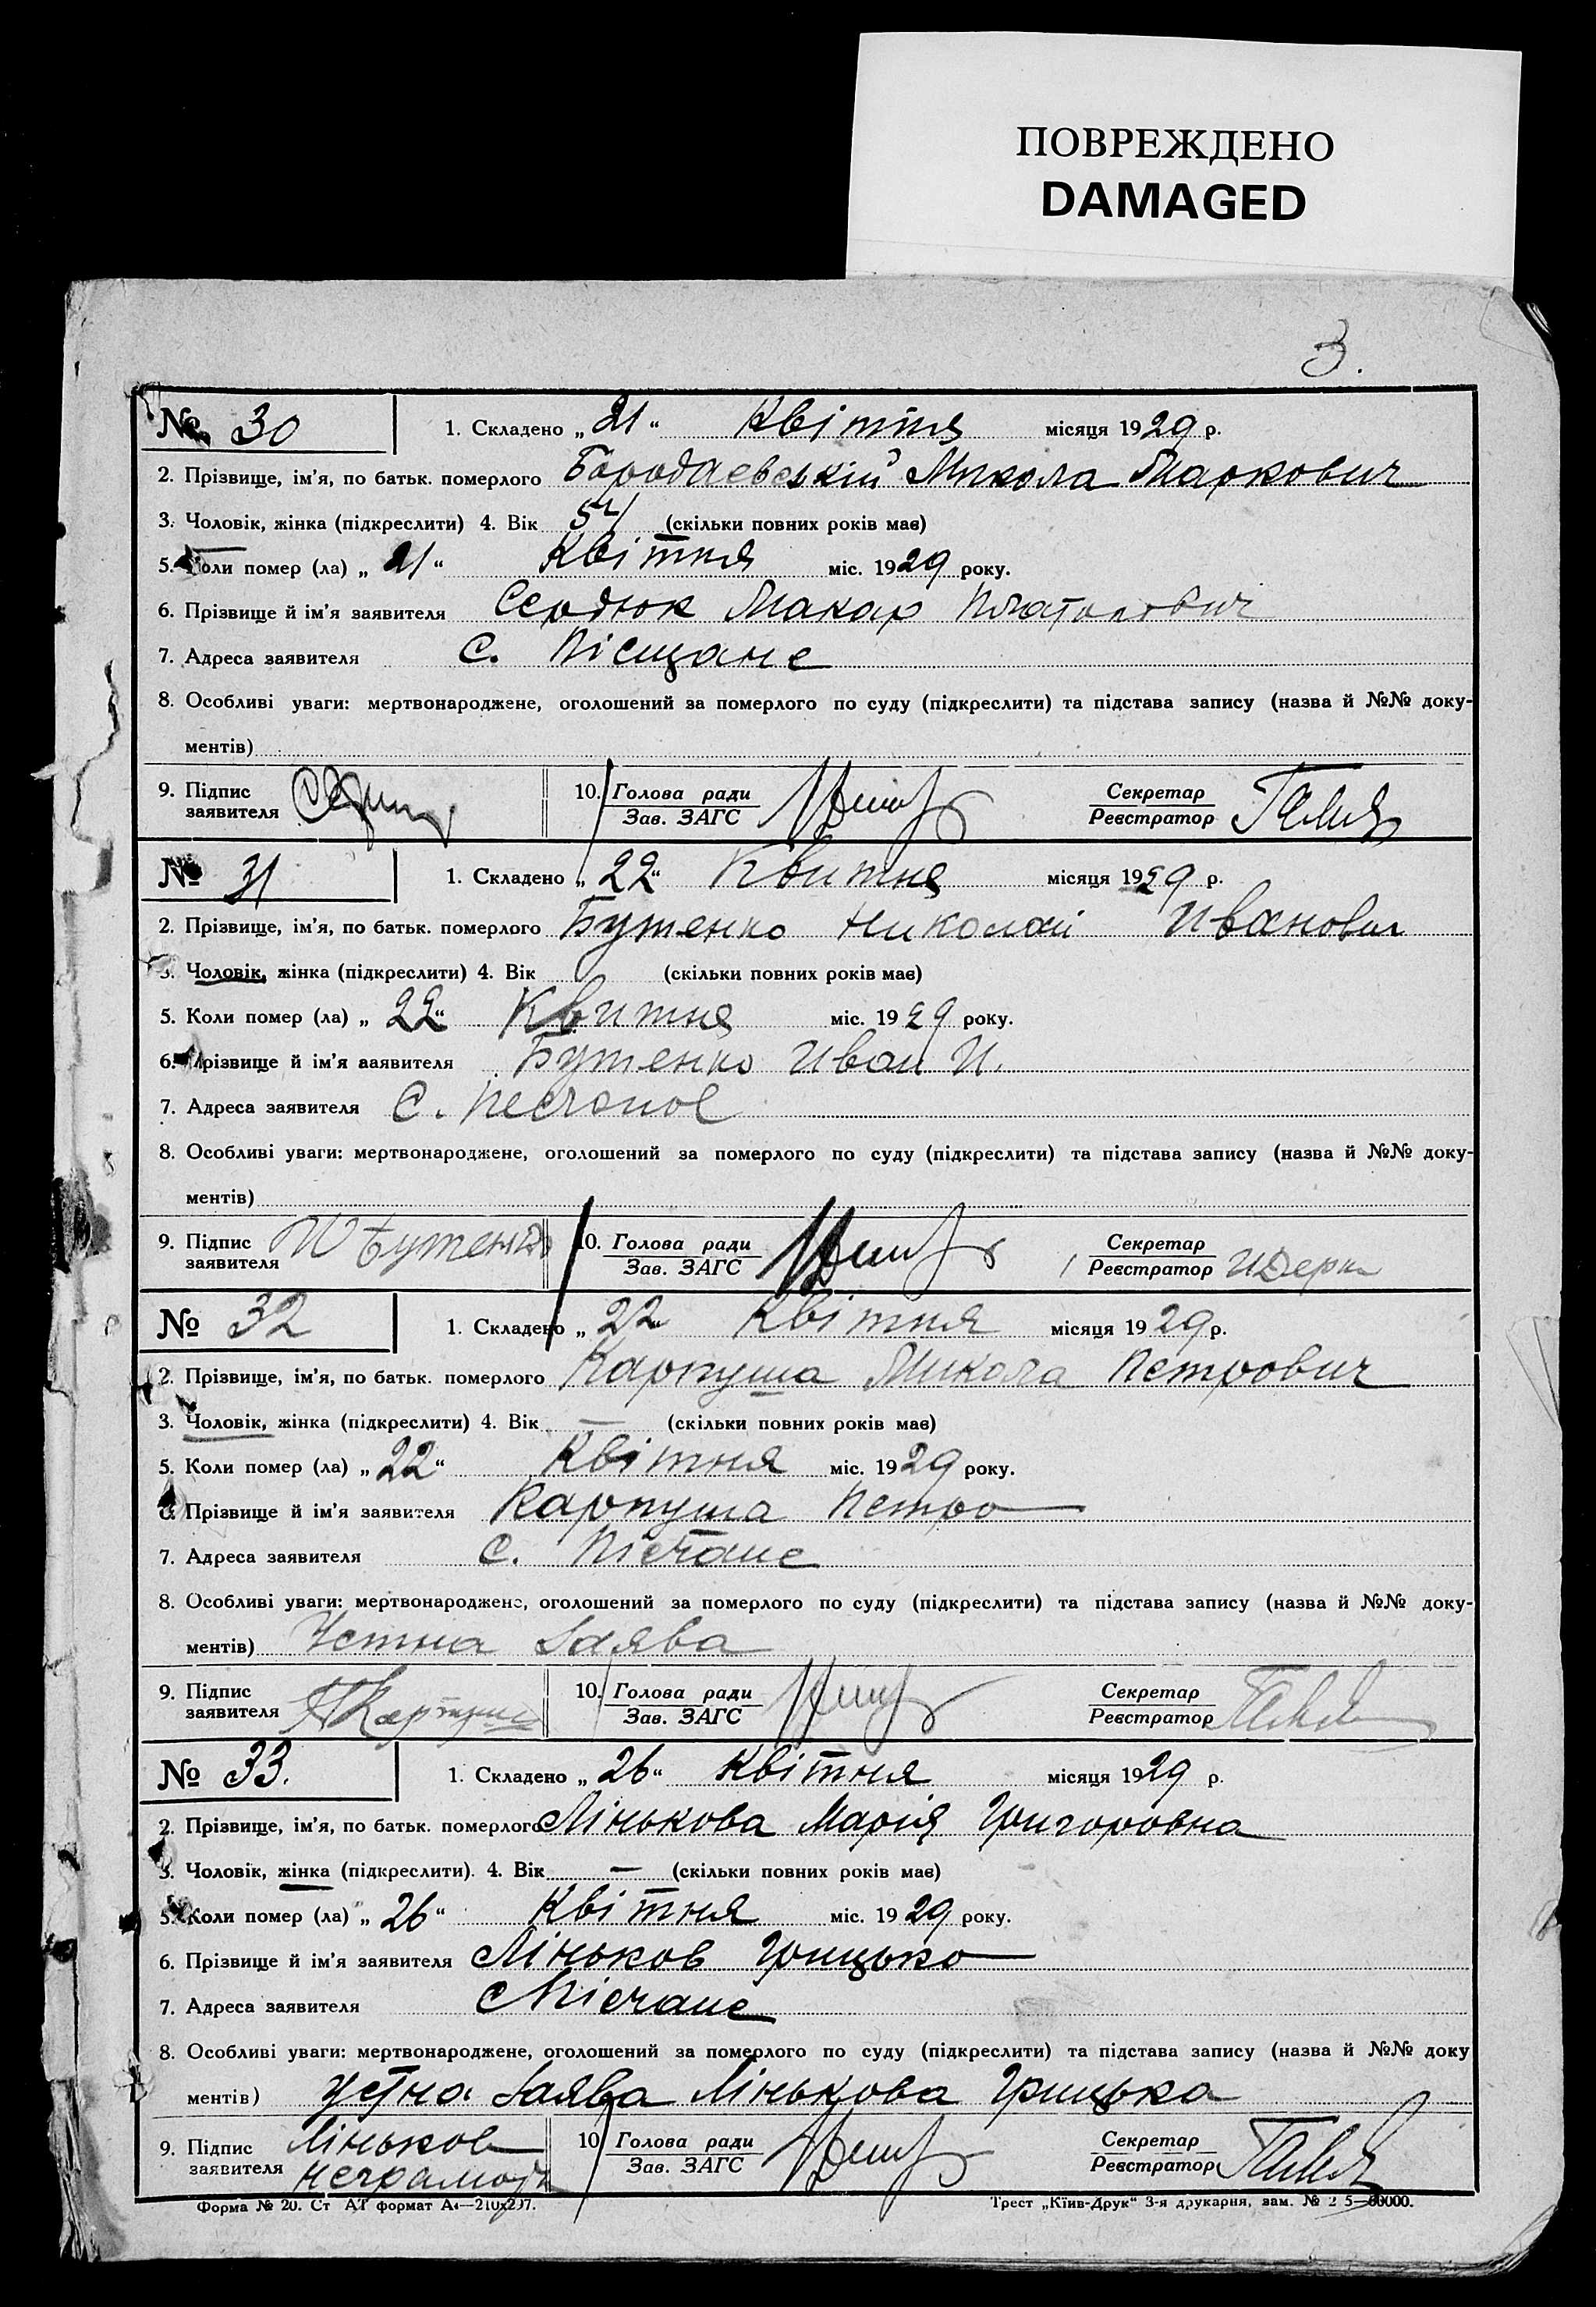 ПОВРЕЖДЕНО
DAMAGED
3.
№ 30 1. Складено „21“ Квітня місяця 1929 р.
2. Прізвище, ім'я, по батьк. померлого Бородаевський Микола Маркович
3. Чоловік, жінка (підкреслити) 4. Вік (скільки повних років має)
5. Коли помер (ла) „21“ Квітня міс. 1929 року.
6. Прізвище й ім'я заявителя Сердюк Макар Платонович
7. Адреса заявителя с. Піещане
8. Особливі уваги: мертвонароджене, оголошений за померлого по суду (підкреслити) та підстава запису (назва й №№ доку-
ментів)
9. Підпис заявителя 10. Голова ради Зав. ЗАГС Секретар Реєстратор
№ 31 1. Складено „22“ Квитня місяця 1929 р.
2. Прізвище, ім'я, по батьк. померлого Бутенко Николай Иванович
3. Чоловік, жінка (підкреслити) 4. Вік (скільки повних років має)
5. Коли помер (ла) „22“ Квитня міс. 1929 року.
6. Прізвище й ім'я заявителя Бутенко Иван И.
7. Адреса заявителя С. Песчаное
8. Особливі уваги: мертвонароджене, оголошений за померлого по суду (підкреслити) та підстава запису (назва й №№ доку-
ментів)
9. Підпис заявителя И Бутенко 10. Голова ради Зав. ЗАГС Секретар Реєстратор
№ 32 1. Складено „22“ Квітня місяця 1929 р.
2. Прізвище, ім'я, по батьк. померлого Карпуша Микола Петрович
3. Чоловік, жінка (підкреслити) 4. Вік — (скільки повних років має)
5. Коли помер (ла) „22“ Квітня міс. 1929 року.
6. Прізвище й ім'я заявителя Карпуша Петро
7. Адреса заявителя с. Пісчане
8. Особливі уваги: мертвонароджене, оголошений за померлого по суду (підкреслити) та підстава запису (назва й №№ доку-
ментів) Устна Заява
9. Підпис заявителя Карпуша 10. Голова ради Зав. ЗАГС Секретар Реєстратор
№ 33. 1. Складено „26“ Квітня місяця 1929 р.
2. Прізвище, ім'я, по батьк. померлого Лінькова Марія Григоровна
3. Чоловік, жінка (підкреслити). 4. Вік — (скільки повних років має)
5. Коли помер (ла) „26“ Квітня міс. 1929 року.
6. Прізвище й ім'я заявителя Ліньков Грицько
7. Адреса заявителя с Пісчане
8. Особливі уваги: мертвонароджене, оголошений за померлого по суду (підкреслити) та підстава запису (назва й №№ доку
ментів) Устна Заява Лінькова Грицька
9. Підпис заявителя Ліньков 10 Голова ради Зав. ЗАГС Секретар Реєстратор
Форма № 20. Ст АТ формат А4—210х297. Трест „Київ-Друк“ 3-я друкарня, зам. №